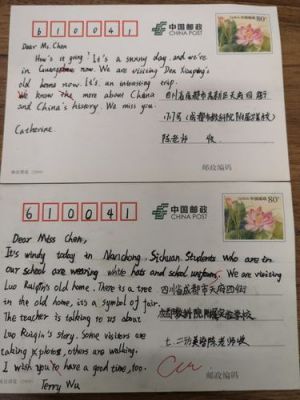 610041
中国邮政
CHINA POST
80分
Dear Ms. Chen
How's it going? It's a sunny day. and we're
in now. We are visiting Den Xiaoping's
old home now. It's an interesting trip.
We know the more about China
and China's history. We miss you.
Catherine
四川省成都市高新区天府四街
陈老师 收
邮政编码
610041
中国邮政
CHINA POST
80分
Dear Miss Chen,
It's windy today in Nanchong, Sichuan. Students who are in
our school are wearing white hats and school uniforms. We are visiting
Luo Ruiqin's old home. There is a tree
in the old home, it's a symbol of fair.
The teacher is talking to us about
Luo Ruiqin's story. Some visitors are
taking photos, others are walking.
I wish you're have a good time, too.
Terry Wu
四川省成都市天府四街
七.二班英语陈老师收
邮政编码